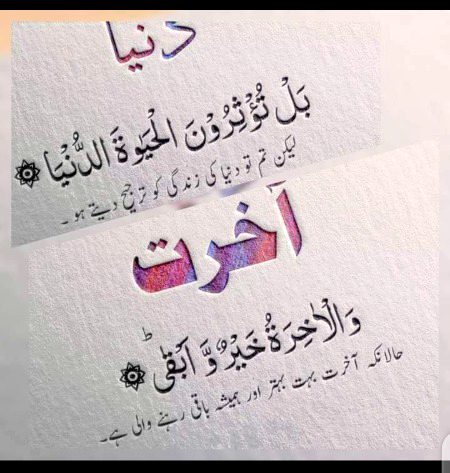 دنیا
بَلْ تُؤْثِرُوْنَ الْحَیٰوةَ الدُّنْیَا
لیکن تم تو دنیا کی زندگی کو ترجیح دیتے ہو۔
آخرت
وَالْاٰخِرَةُ خَیْرٌ وَّ اَبْقٰیؕ
حالانکہ آخرت بہت بہتر اور ہمیشہ باقی رہنے والی ہے۔